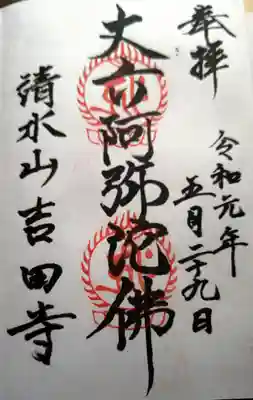 奉拝
令和元年
五月二十九日
丈六阿弥陀佛
清水山吉田寺